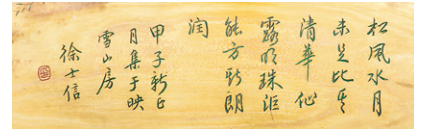 松風水月
未足比其
清華仙
露明珠詎
能方其朗
润
甲子新正
月集于映
雪山房
徐士信